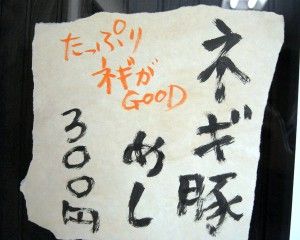 ネギ豚
めし
300円
たっぷり
ネギが
GOOD